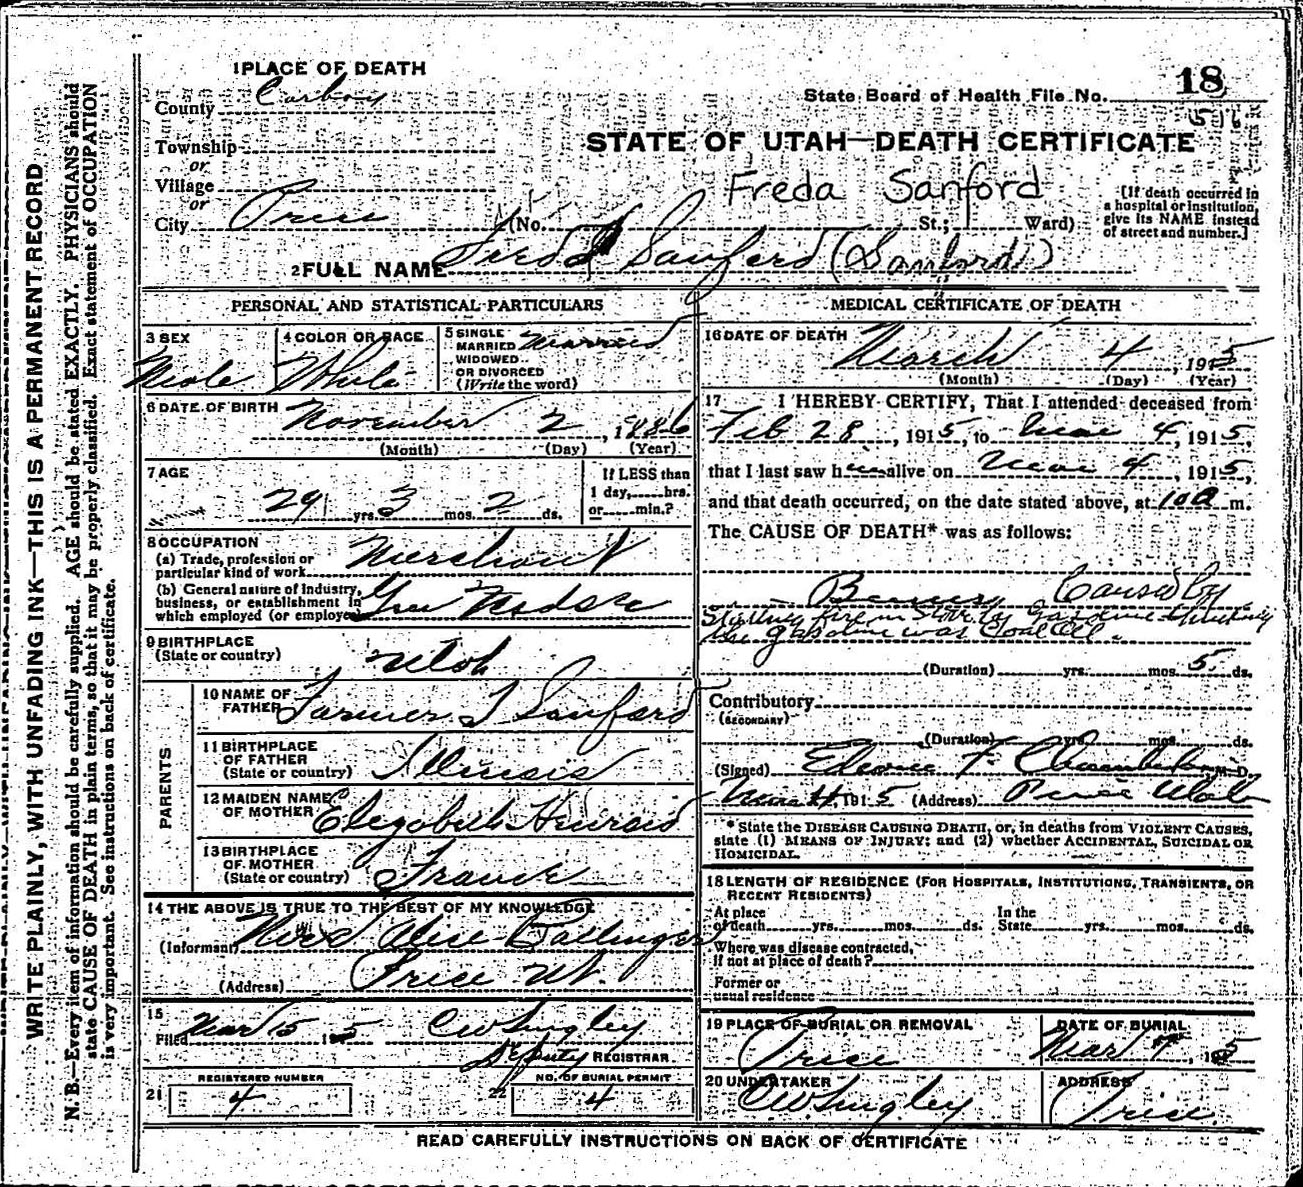 1 PLACE OF DEATH
County Carbon
State Board of Health File No. 18
516
STATE OF UTAH—DEATH CERTIFICATE
Township
or
Village
or
City Price
Freda Sanford
(No. St.; Ward)
[If death occurred in
a hospital or institution,
give its NAME instead
of street and number.]
2 FULL NAME Sanford (Sanford)
PERSONAL AND STATISTICAL PARTICULARS
3 SEX
Male
4 COLOR OR RACE
White
5 SINGLE
MARRIED
WIDOWED
OR DIVORCED
(Write the word)
Married
6 DATE OF BIRTH
November 2, 1886
(Month) (Day) (Year)
7 AGE
29 yrs. 3 mos. 2 ds.
If LESS than
1 day, hrs.
or min.?
8 OCCUPATION
(a) Trade, profession or
particular kind of work Merchant
(b) General nature of industry,
business, or establishment in
which employed (or employer)
9 BIRTHPLACE
(State or country) Utah
PARENTS
10 NAME OF
FATHER Sanford
11 BIRTHPLACE
OF FATHER
(State or country) Illinois
12 MAIDEN NAME
OF MOTHER
13 BIRTHPLACE
OF MOTHER
(State or country) France
14 THE ABOVE IS TRUE TO THE BEST OF MY KNOWLEDGE
(Informant) Ballinger
(Address) Price Ut.
15
Filed Mar 5 1915 CW Singley
Deputy REGISTRAR
REGISTERED NUMBER
21 4
NO. OF BURIAL PERMIT
22 4
MEDICAL CERTIFICATE OF DEATH
16 DATE OF DEATH
March 4, 1915
(Month) (Day) (Year)
17 I HEREBY CERTIFY, That I attended deceased from
Feb 28, 1915, to Mar 4, 1915,
that I last saw him alive on Mar 4, 1915,
and that death occurred, on the date stated above, at 10 a m.
The CAUSE OF DEATH* was as follows:
Burns, Caused by
Starting fire in Stove by Gasoline thinking
the gasoline was Coal Oil.
(Duration) yrs. mos. 5 ds.
Contributory
(SECONDARY)
(Duration) yrs. mos. ds.
(Signed) F. M. D.
Mar 4, 1915 (Address) Price Utah
* State the DISEASE CAUSING DEATH, or, in deaths from VIOLENT CAUSES,
state (1) MEANS OF INJURY; and (2) whether ACCIDENTAL, SUICIDAL OR
HOMICIDAL.
18 LENGTH OF RESIDENCE (FOR HOSPITALS, INSTITUTIONS, TRANSIENTS, OR
RECENT RESIDENTS)
At place
of death yrs. mos. ds.
In the
State yrs. mos. ds.
Where was disease contracted,
if not at place of death?
Former or
usual residence
19 PLACE OF BURIAL OR REMOVAL
Price
DATE OF BURIAL
Mar 7, 1915
20 UNDERTAKER
CW Singley
ADDRESS
Price.
READ CAREFULLY INSTRUCTIONS ON BACK OF CERTIFICATE
WRITE PLAINLY, WITH UNFADING INK—THIS IS A PERMANENT RECORD
N. B.—Every item of information should be carefully supplied. AGE should be stated EXACTLY. PHYSICIANS should
state CAUSE OF DEATH in plain terms, so that it may be properly classified. Exact statement of OCCUPATION
is very important. See instructions on back of certificate.